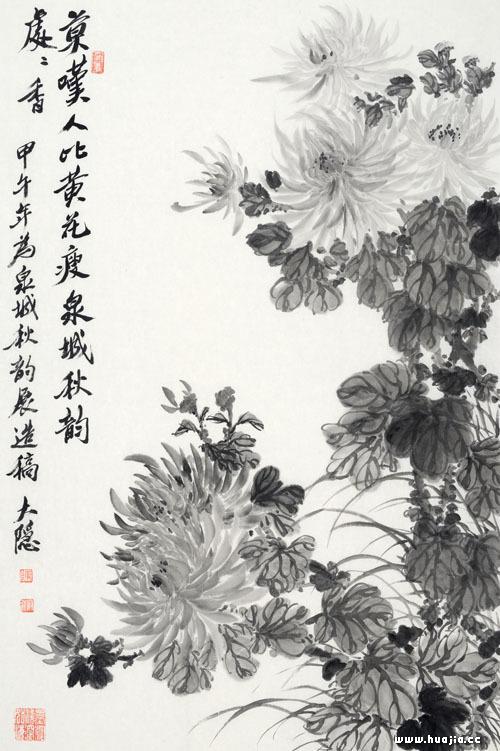 莫嘆人比黄花瘦泉城秋韵
處〻香
甲午年为泉城秋韵展造稿 大隐
www.huajia.cc